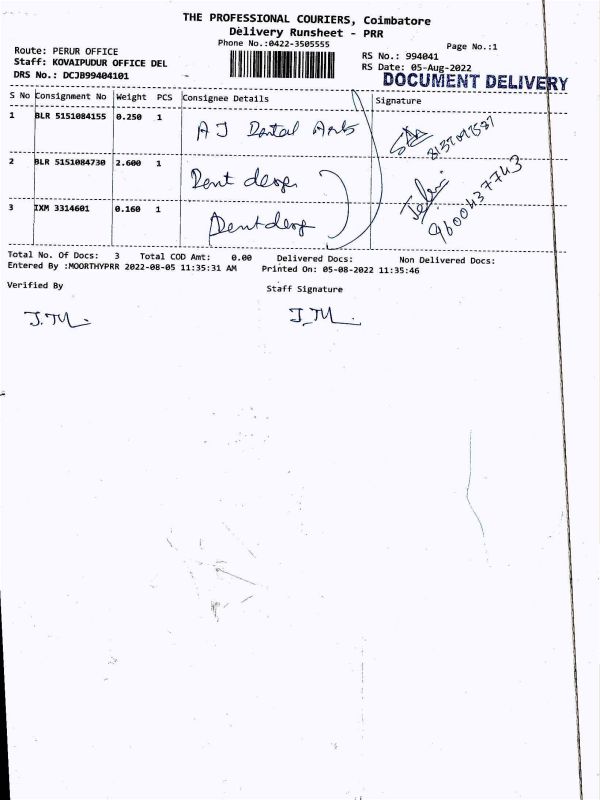 THE PROFESSIONAL COURIERS, Coimbatore
Delivery Runsheet - PRR
Phone No.:0422-3505555
Page No.:1
Route: PERUR OFFICE
RS No.: 994041
Staff: KOVAIPUDUR OFFICE DEL
RS Date: 05-Aug-2022
DRS No.: DCJB99404101
DOCUMENT DELIVERY
S No Consignment No Weight PCS Consignee Details Signature
1 BLR 5151084155 0.250 1 A J Dental Arts
2 BLR 5151084730 2.600 1 Dent
3 IXM 3314601 0.160 1
9600437743
Total No. Of Docs: 3 Total COD Amt: 0.00 Delivered Docs: Non Delivered Docs:
Entered By :MOORTHYPRR 2022-08-05 11:35:31 AM Printed On: 05-08-2022 11:35:46
Verified By Staff Signature